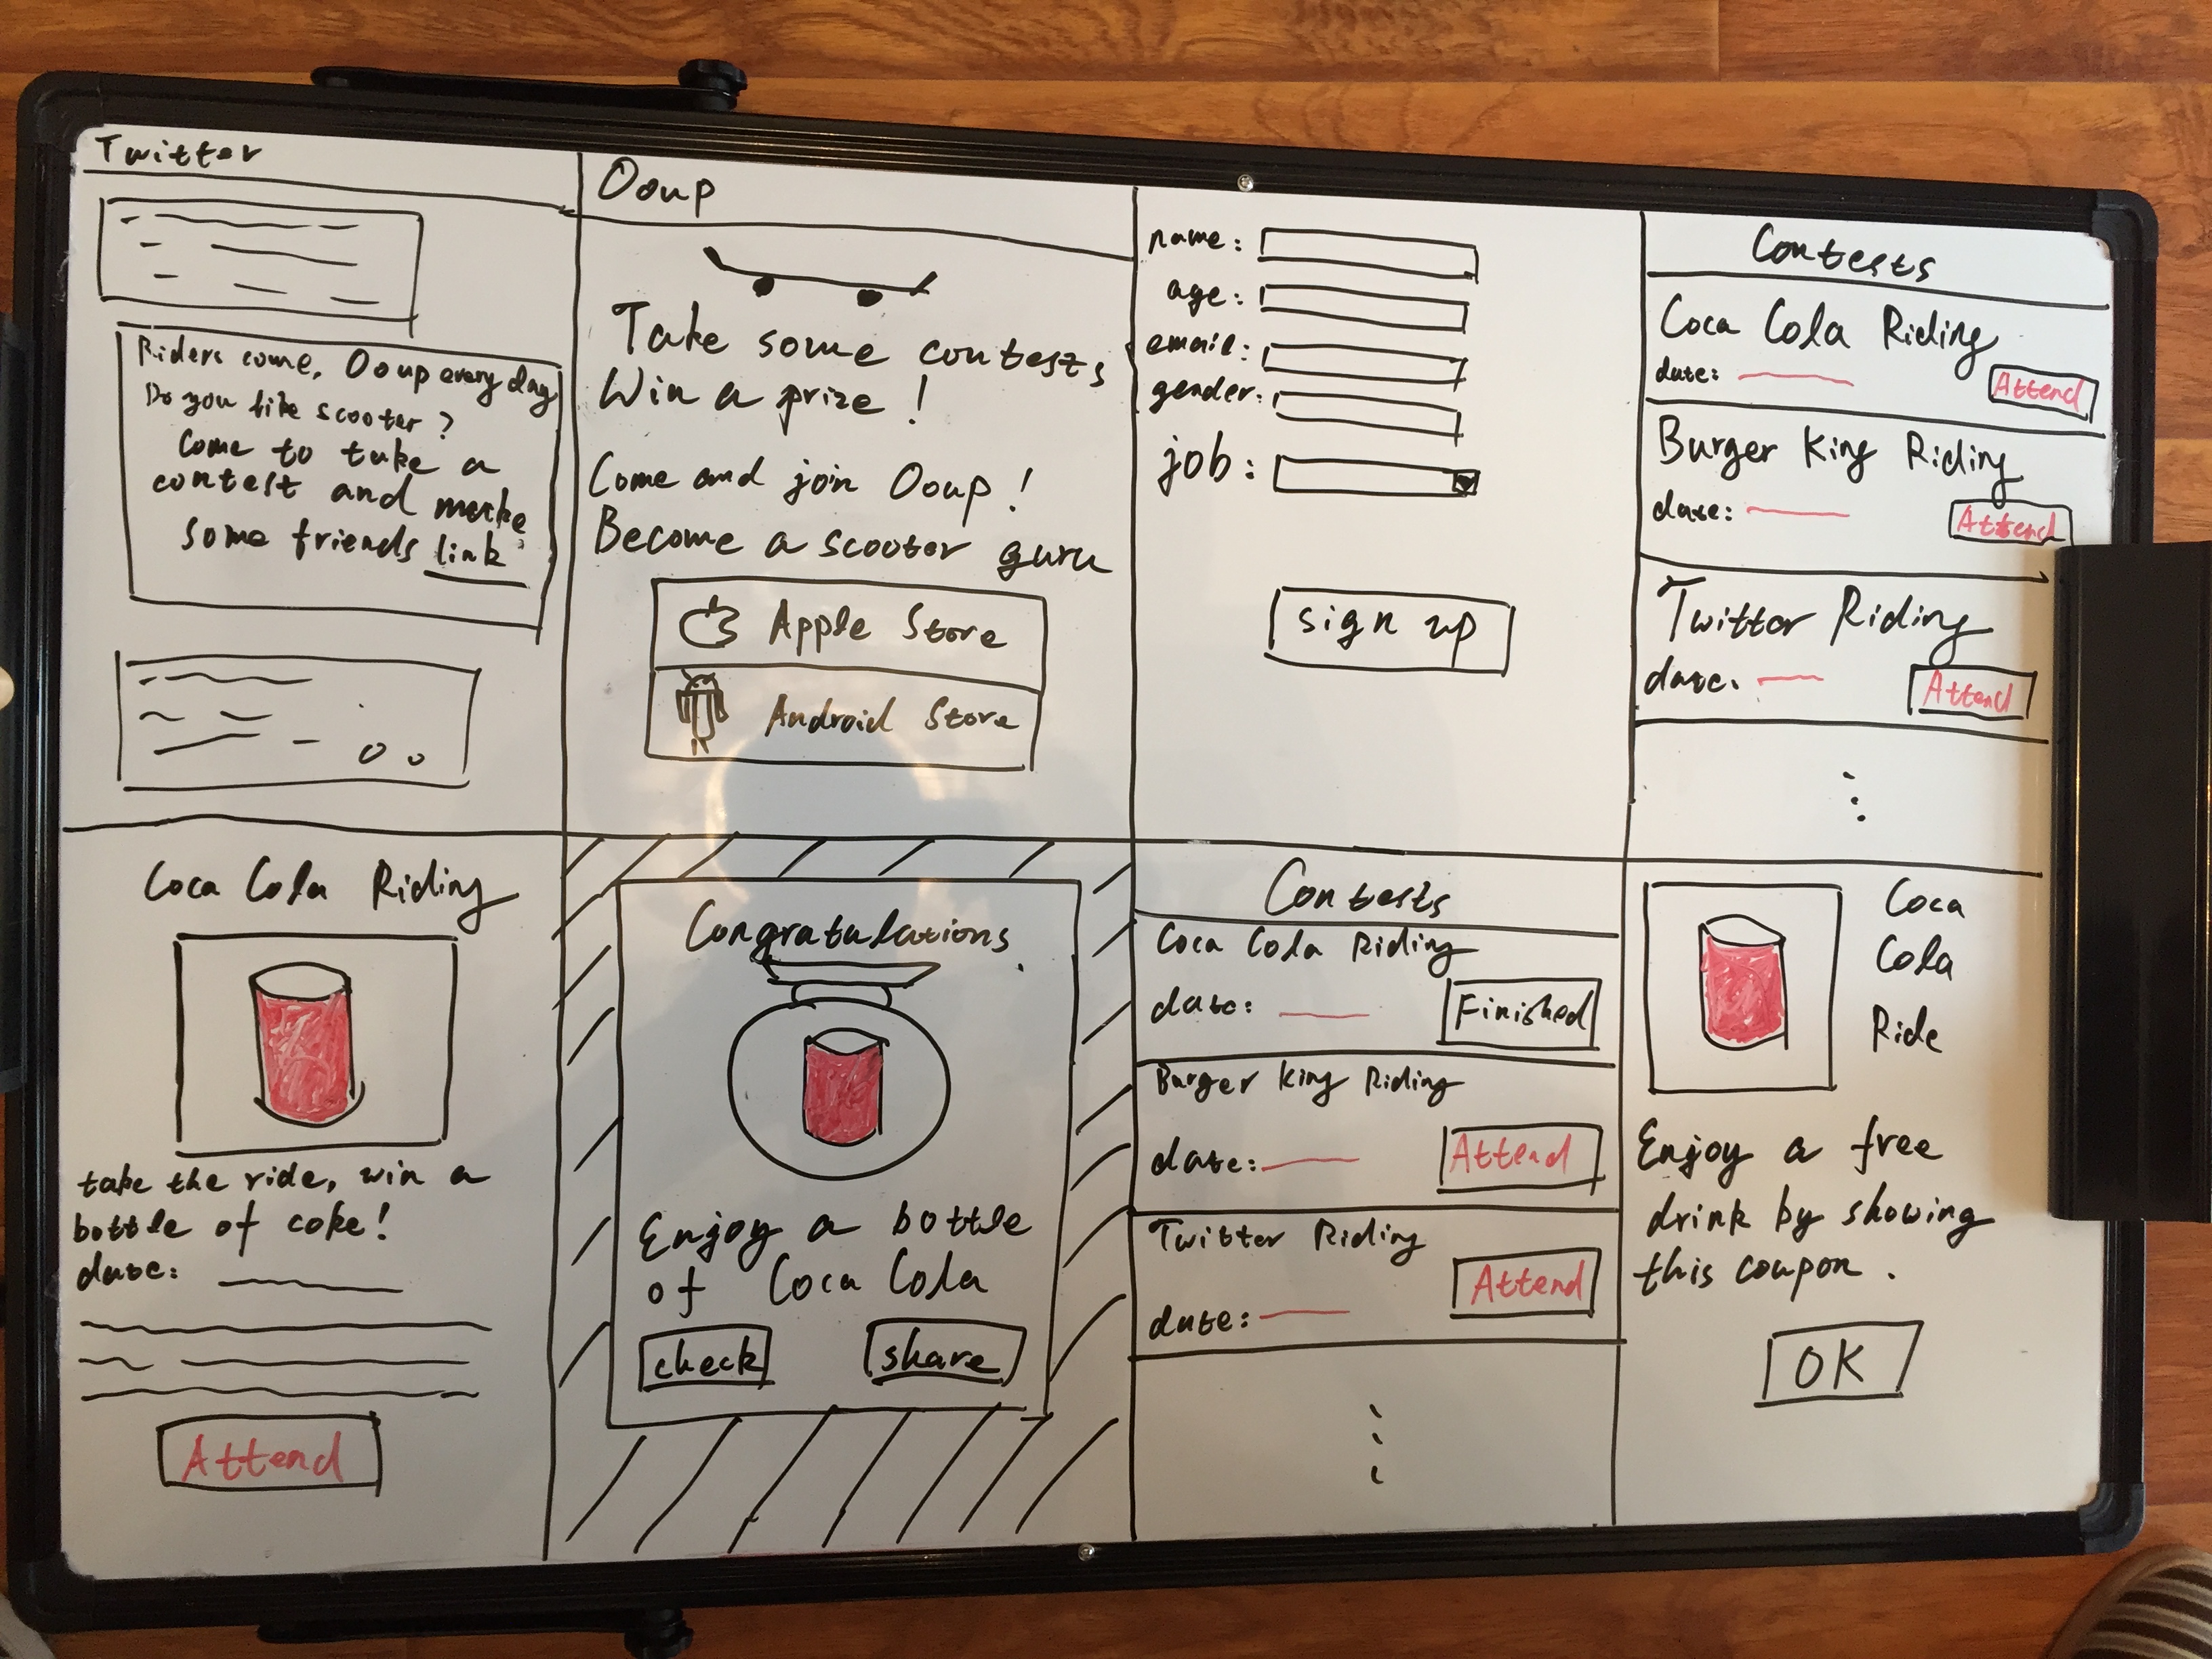 Twitter
Riders come, Ooup every day
Do you like scooter?
Come to take a
contest and make
some friends link
Ooup
Take some contests
Win a prize!
Come and join Ooup!
Become a scooter guru
Apple Store
Android Store
name:
age:
email:
gender:
job:
sign up
Contests
Coca Cola Riding
date:
Attend
Burger King Riding
date:
Attend
Twitter Riding
date.
Attend
Coca Cola Riding
take the ride, win a
bottle of coke!
date:
Attend
Congratulations
Enjoy a bottle
of Coca Cola
check share
Contests
Coca Cola Riding
date:
Finished
Burger King Riding
date:
Attend
Twitter Riding
Attend
date:
Coca
Cola
Ride
Enjoy a free
drink by showing
this coupon.
OK